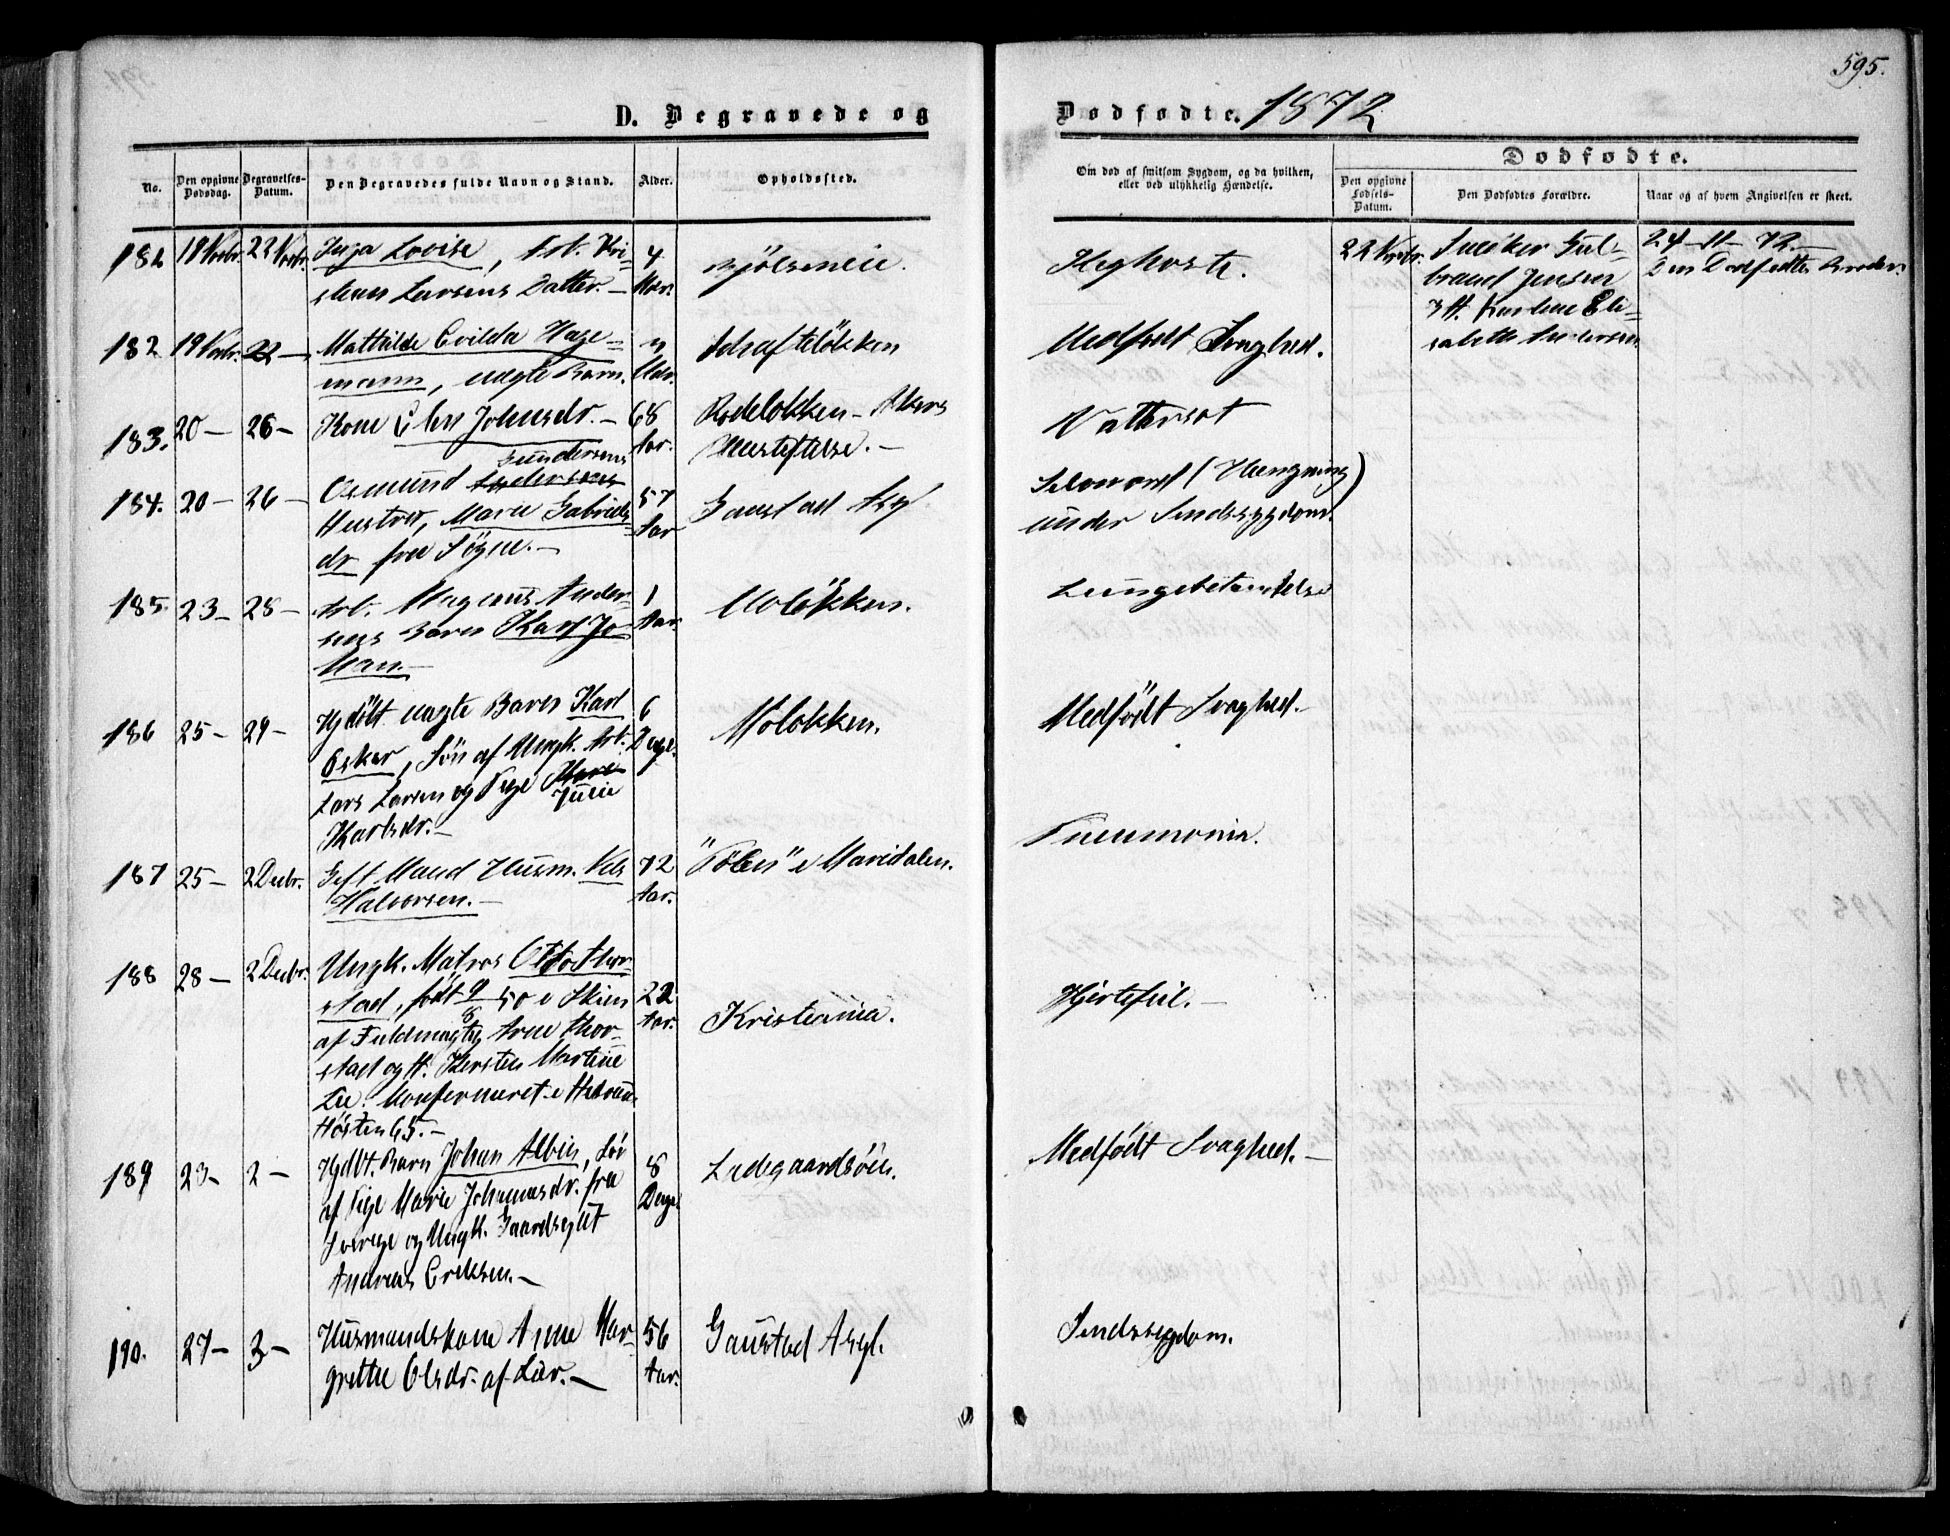 595.
D. Begravede og
Dødfødte. 1872
No.
Den opgivne Dødsdag.
Begravelses-Datum.
Den Begravedes fulde Navn og Stand.
Alder.
Opholdssted.
Om død af smitsom Sygdom, og da hvilken, eller ved ulykkelig Hændelse.
Dødfødte.
Den opgivne Fødsels-Datum.
Den Dødfødtes Forældre.
Naar og af hvem Angivelsen er skeet.
182 19 Novbr. 22 Novbr. Inga Lovise, Arb. Kri-
stian Larsens Datter.—
4
Mdr.
Bjølseneie.
Kighoste.
22 Novbr.
Smöker Gul-
brand Jensen
& H. Karline Eli-
sabeth Andersen
24-11-72.—
Den Dødfødtes Broder.
182. 19 Novbr. 22—
Mathilde Evilda Hage-
mann, uægte Barn.
Mdr.
Schafteløkken
Medfødt Svaghed.
183. 20— 26—
Kone Elen Johnsdr.— 68
Aar.
Rodeløkken- Akers
Vattersot
184. 20— 26—
Gundersens
Osmund Andersens
Hustro, Marie Gabriels-
dr fra Søgne.—
57
Aar
Gaustad Asyl
Selvmord (Hængning)
under Sindssygdom.
185. 23— 28—
Arb. Magnus Ander-
sens Barn Karl Jo-
han.—
1
Aar.
Moløkken.
Lungebetændelse
186 25— 29—
Hjdöbt uægte Barn Karl
Oskar, Søn af Ungk. Arb.
Lars Larsen og Pige Mari
Julie
Karlsdr.—
6
Dage.
Moløkken.
Medfødt Svaghed.—
187 25— 2 Decbr.
Gift Mand Husm. Nils
Halvorsen.—
72
Aar.
"Pølen" i Maridalen.
Pneumonia.
188 28— 2 Decbr.
Ungk. Matros Otto Thor-
stad, født 9/6 50 i Skien
af Fuldmægtig Arne Thor-
stad og H. Kersten Martine
Lie. Konfirmeret i
Høsten 65.—
22
Aar.
Kristiania.
Hjertefeil.—
189 23— 2—
Hjdbt. Barn Johan Albin, Søn
af Pige Marie Johannesdr. fra
Sverige og Ungk. Gaardsgut
Andreas Eriksen.—
8
Dage
Ladegaardsöen.
Medfødt Svaghed.—
190. 27— 3—
Husmandskone Anne Mar-
grethe Olsdr. af Lier.—
56
Aar.
Gaustad Asyl.
Sindssygdom.